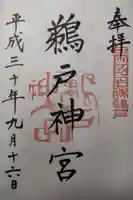 奉拝
鵜戸神宮
平成三十年九月十六日